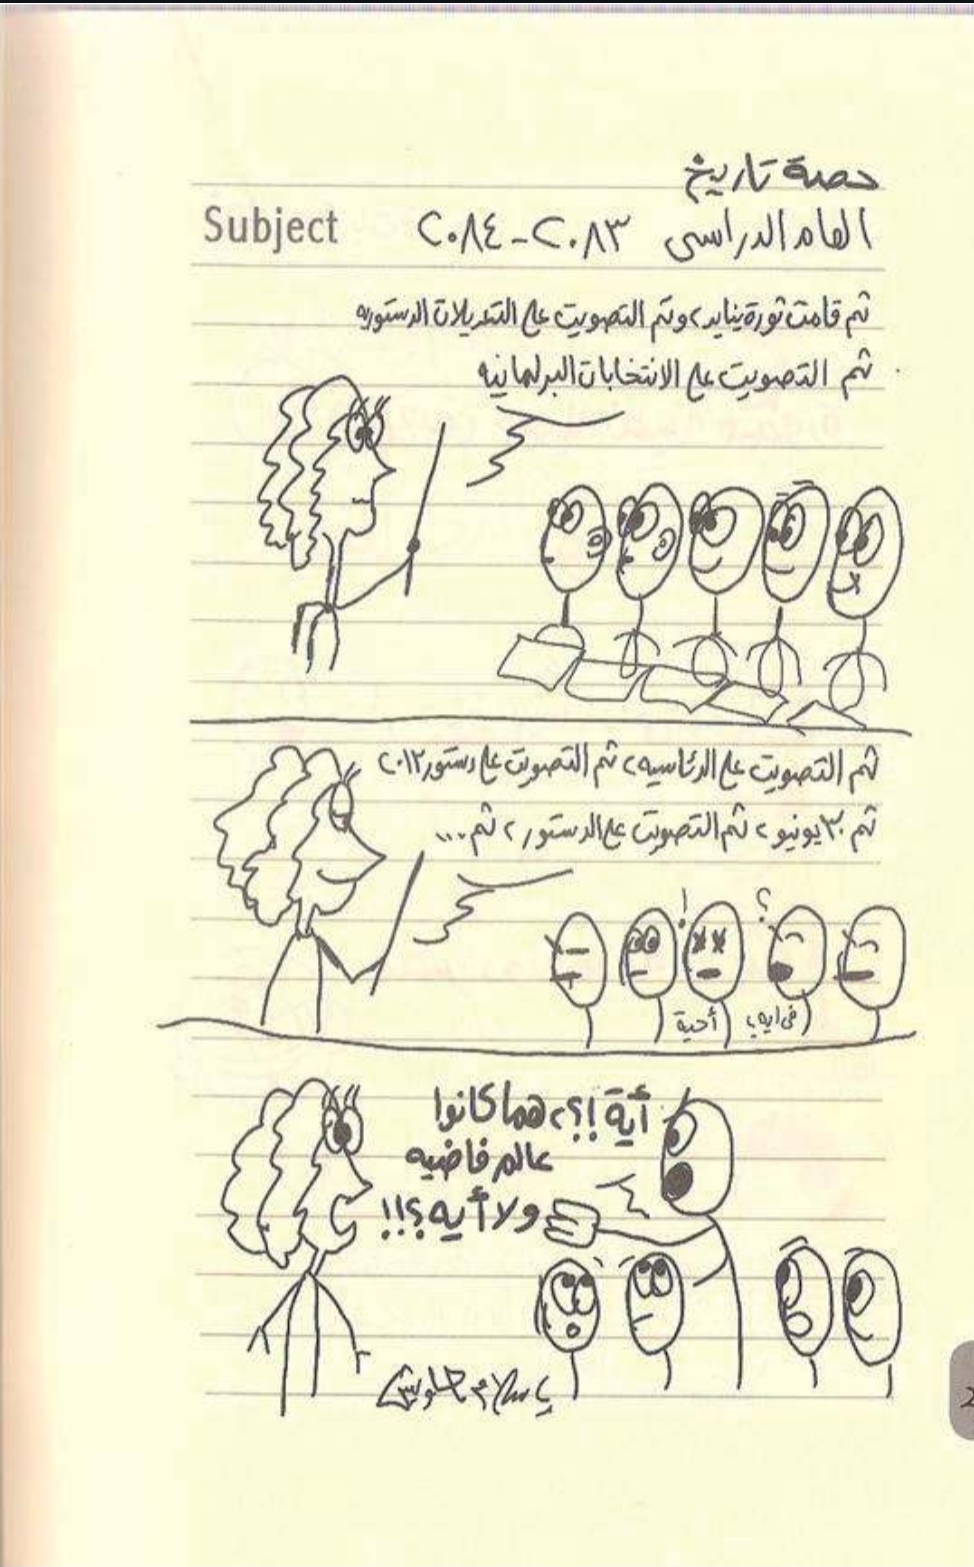 حصة تاريخ
Subject العام الدراسى ٢٠٨٣-٢٠٨٤
ثم قامت ثورة يناير، وتم التصويت على التعديلات الدستوريه
ثم التصويت على الانتخابات البرلمانيه
ثم التصويت على الرئاسيه، ثم التصويت على دستور ٢٠١٢
ثم ٣٠ يونيو، ثم التصويت على الدستور، ثم...
! ؟
أحية
فى ايه؟
أية!؟، هما كانوا
عالم فاضيه
ولا أيه؟!!
ياسلام جاويش
2